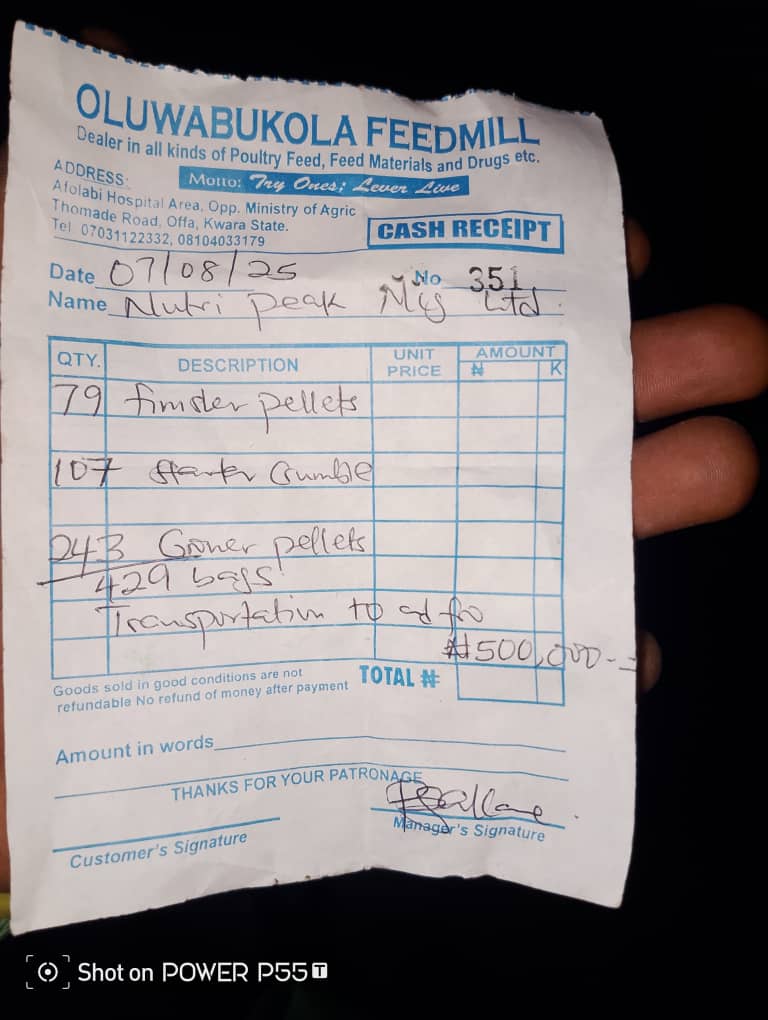 OLUWABUKOLA FEEDMILL
Dealer in all kinds of Poultry Feed, Feed Materials and Drugs etc.
Motto: Try Ones; Lever Live
ADDRESS:
Afolabi Hospital Area, Opp. Ministry of Agric
Thomade Road, Offa, Kwara State.
Tel 07031122332, 08104033179
CASH RECEIPT
Date 07/08/25 No 351
Name Nutri peak Ltd
QTY. DESCRIPTION UNIT PRICE AMOUNT
₦ K
79 finisher pellets
107 starter Crumble
243 Grower pellets
429 bags
Transportation to ad fro
₦500,000-=
Goods sold in good conditions are not
refundable No refund of money after payment
TOTAL ₦
Amount in words
THANKS FOR YOUR PATRONAGE
Customer's Signature
Manager's Signature
Shot on POWER P55 T